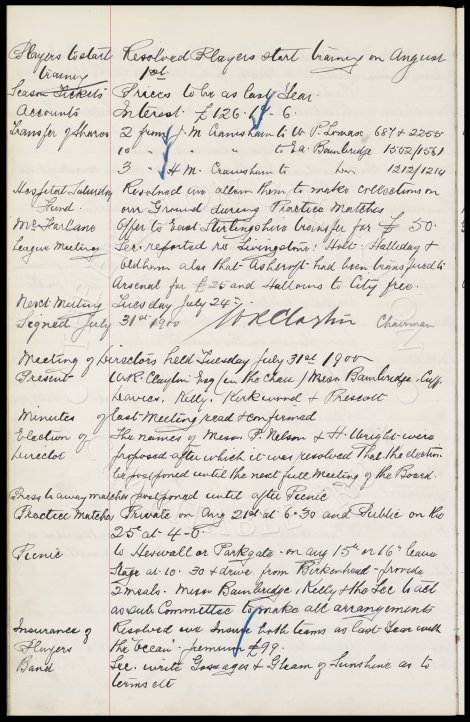 Players to start Resolved Players start training on August
training 1st.
Season Tickets Prices to be as last Year.
Accounts Interest. £126. 19. 6.
Transfer of Shares 2 from J. M. Crawshaw to W. P. Lomax 687 & 2255
10 " " to E.A. Bainbridge 1552/1561
3 " H M. Crawshaw to 1212/1214
Hospital Saturday Resolved we allow them to make collections on
Fund. our Ground during Practice Matches
McFarlane Offer to East Stirlingshire transfer for £50.
League Meeting Sec. reported re Livingstone: Holt. Halliday &
Oldham also that Ashcroft had been transferred to
Arsenal for £25 and Hallows to City free.
Next Meeting Tuesday July 24th
Signed July 31st 1900 W R Clayton Chairman
Meeting of Directors held Tuesday July 31st 1900
Present W.R. Clayton Esq (in the chair) Messrs Bainbridge. Cuff
Davies. Kelly. Kirkwood & Prescott
Minutes of last Meeting read & confirmed
Election of The names of Messrs P. Nelson & H. Wright were
Director proposed after which it was resolved that the election
be postponed until the next full Meeting of the Board.
Press to away matches postponed until after Picnic
Practice Matches Private on Aug 21st at 6.30 and Public on the
25th at 4-0.
Picnic to Heswall or Parkgate. on Aug 15th or 16th leave
Stage at 10.30 & drive from Birkenhead - provide
2 meals. Messrs Bainbridge, Kelly & the Sec to act
as Sub Committee to make all arrangements
Insurance of Resolved we Insure both teams as last Year with
Players the "Ocean" premium £99.
Band Sec. write Gossages & Gleam of Sunshine as to
terms etc